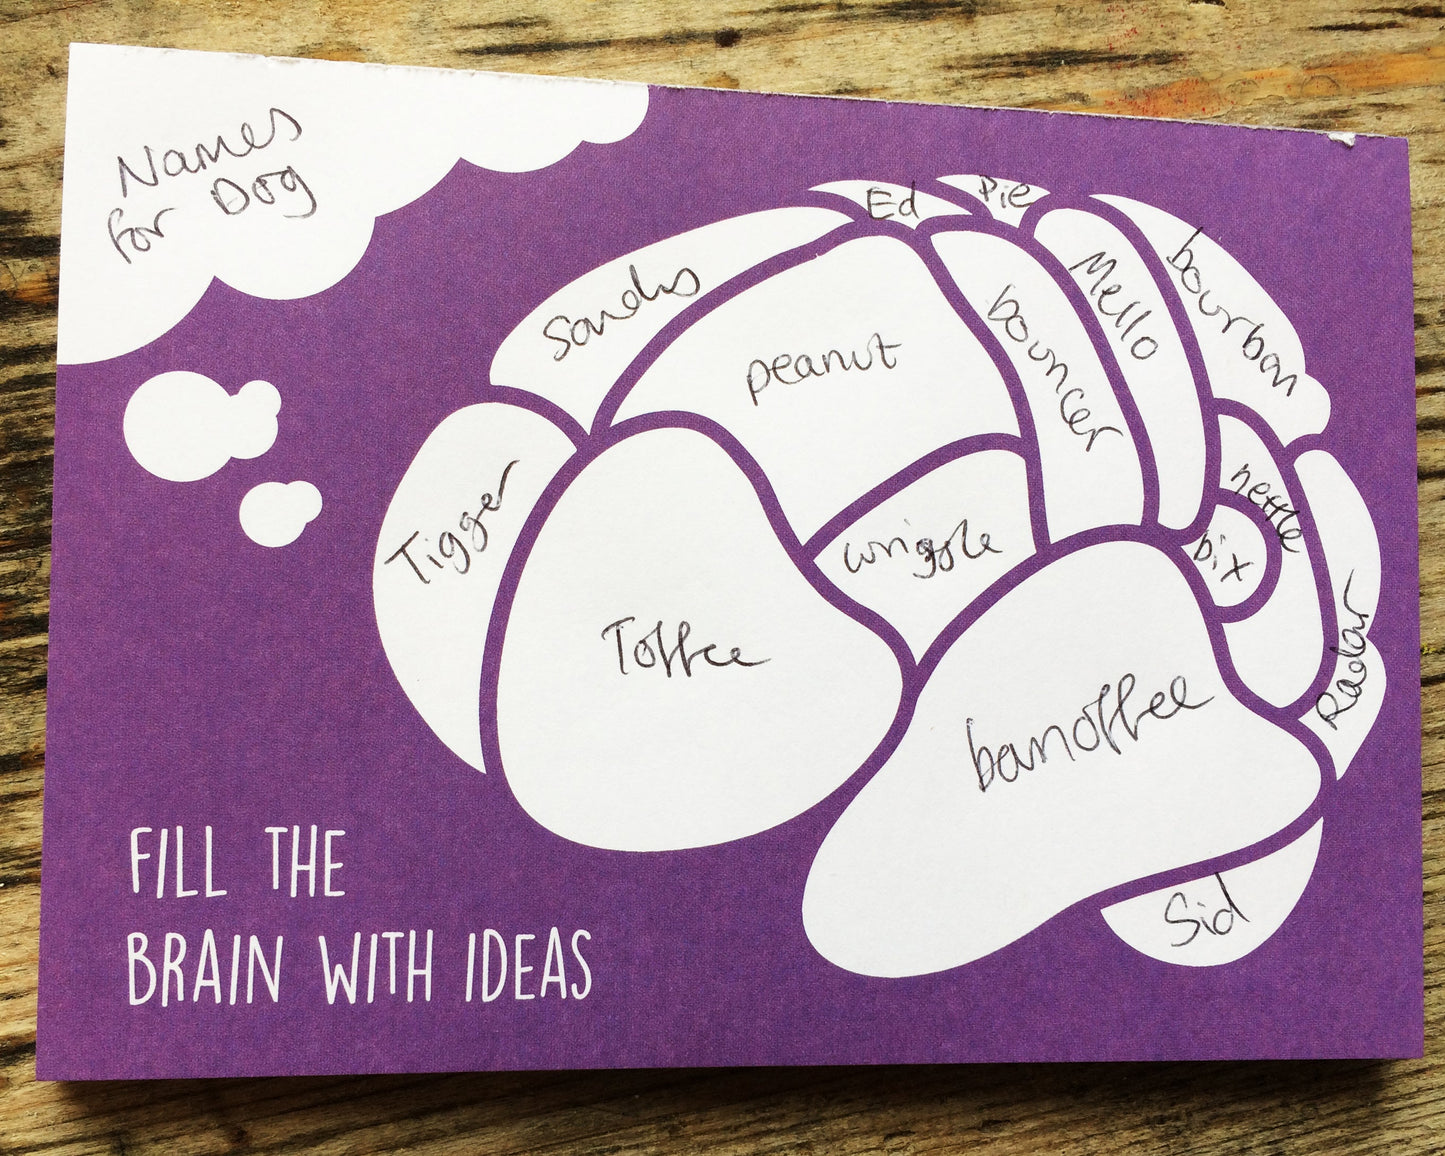 Names
for Dog
Ed
Pie
Sandy
peanut
bouncer
Mello
bourbon
Tigger
wriggle
nettle
bix
Toffee
banoffee
Radar
Sid
FILL THE
BRAIN WITH IDEAS